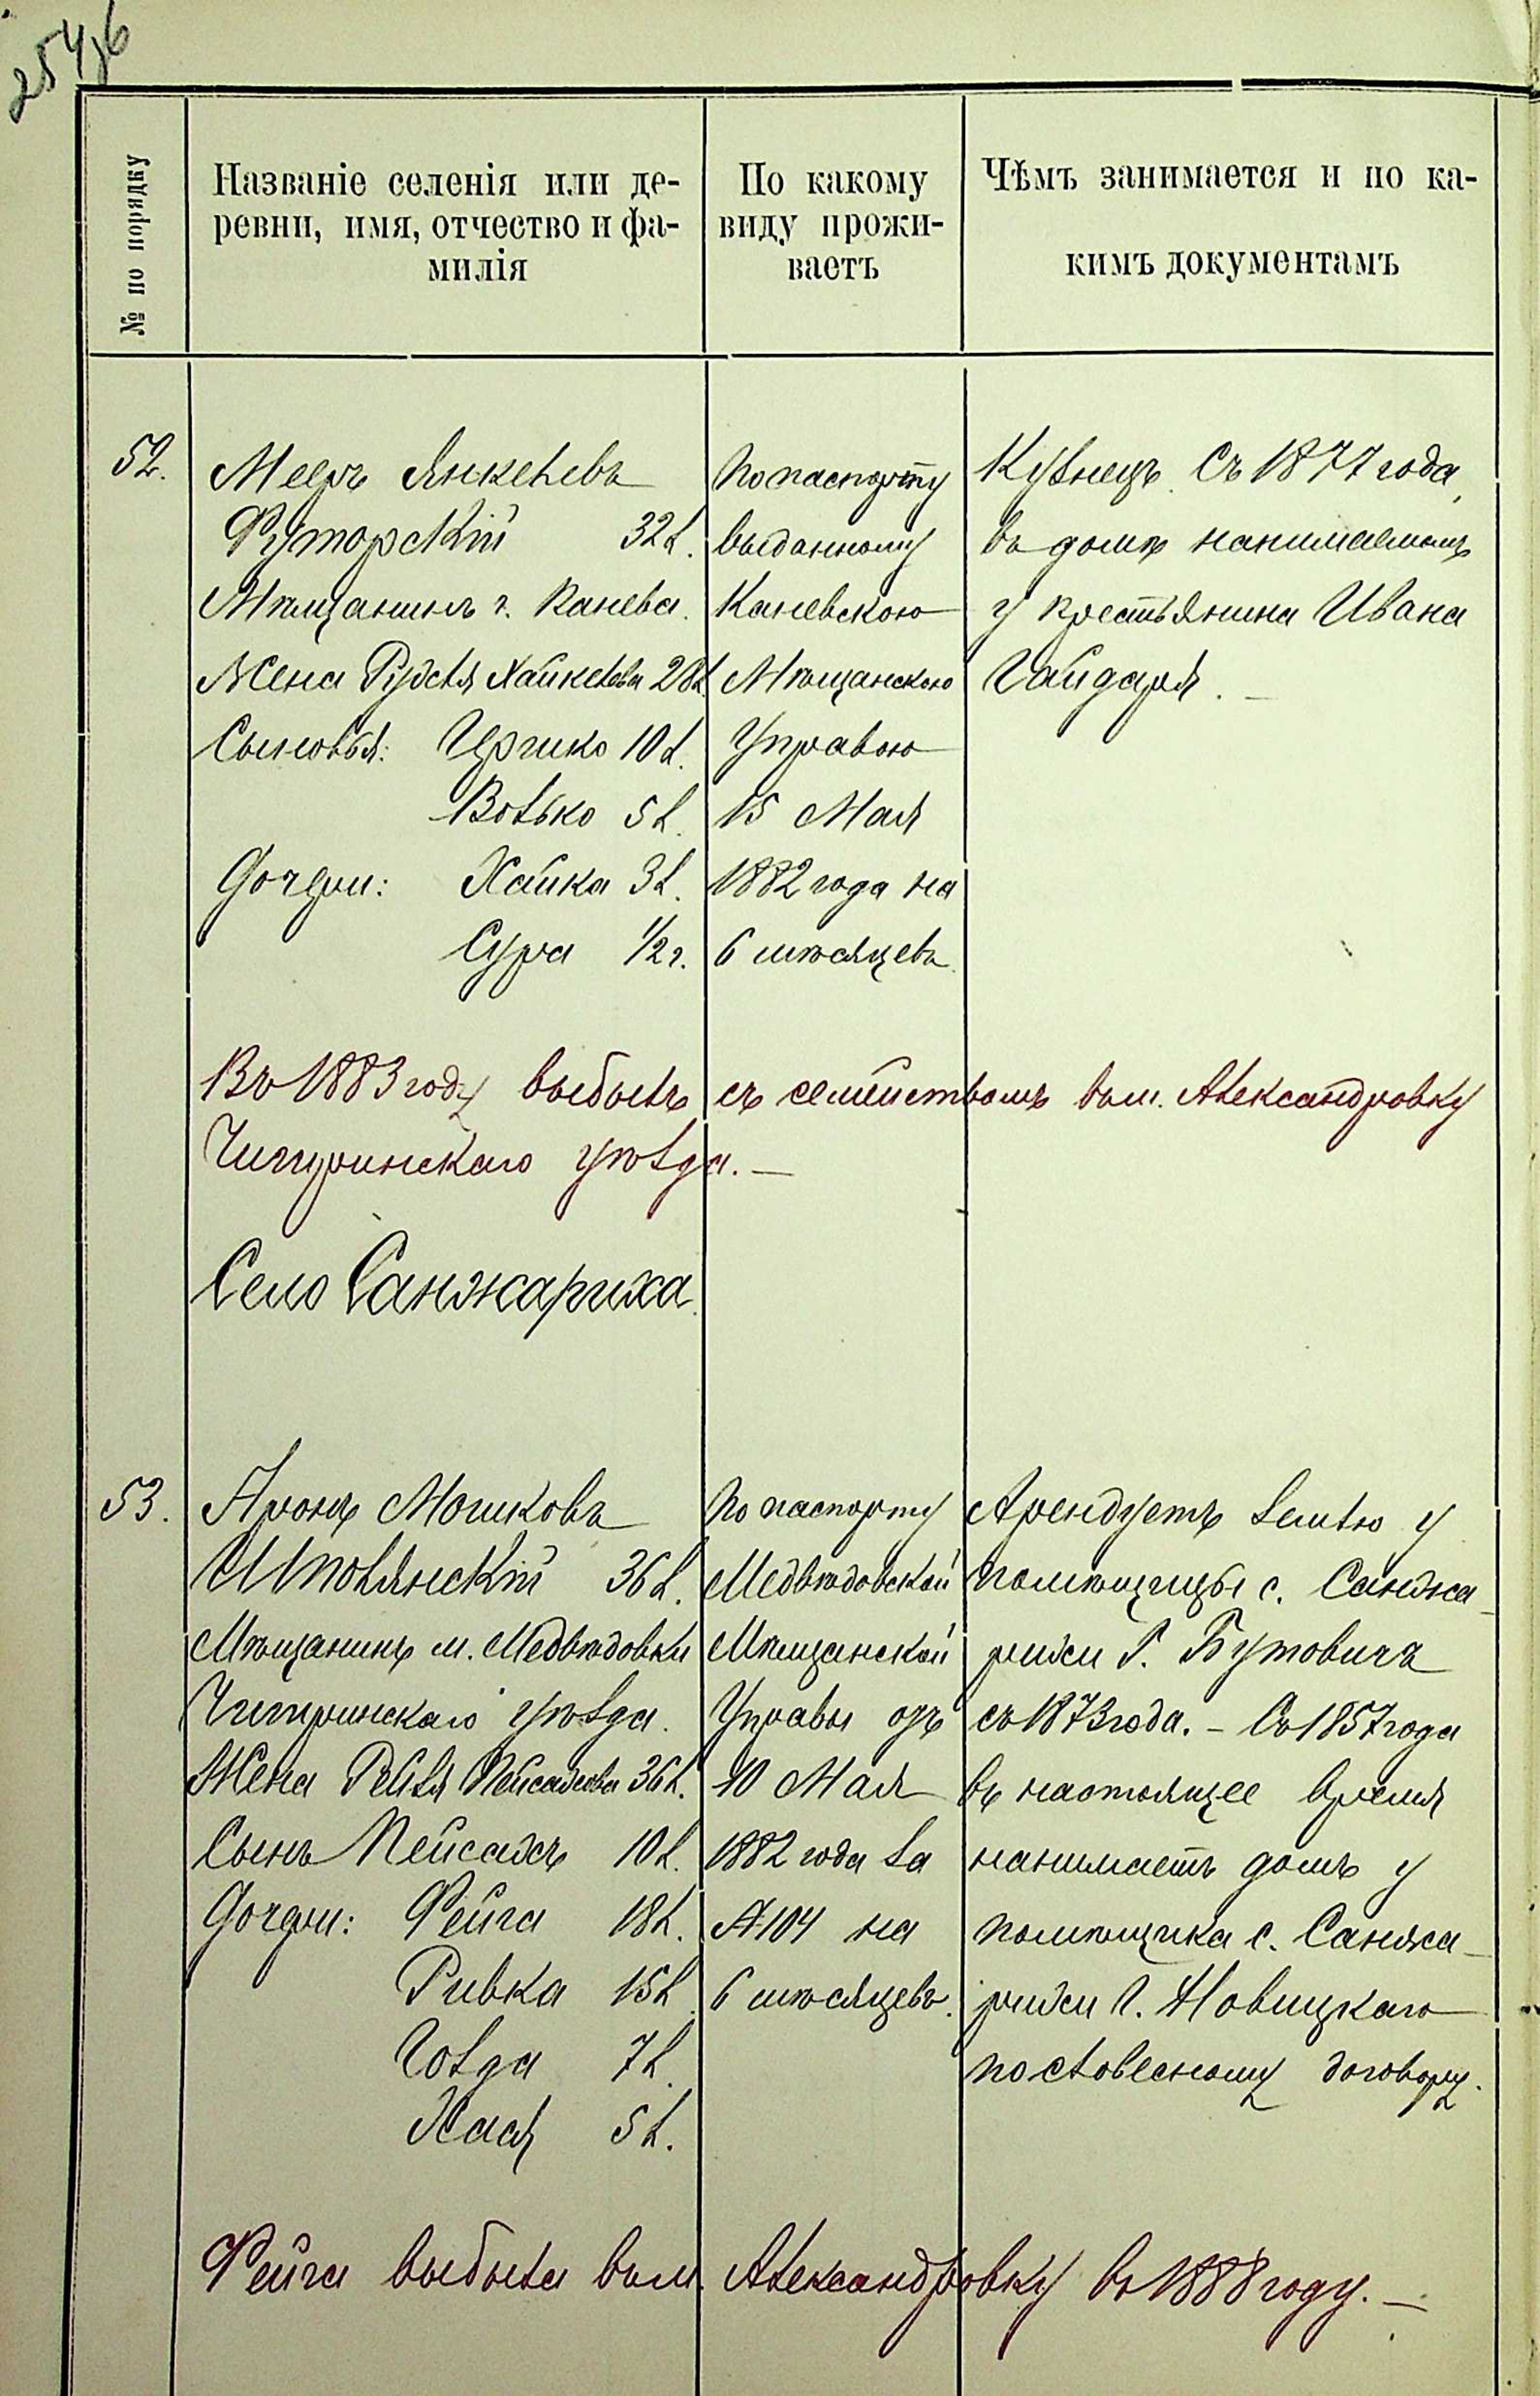 254об
№ по порядку
Названіе селенія или де-
ревни, имя, отчество и фа-
милія
По какому
виду прожи-
ваетъ
Чѣмъ занимается и по ка-
кимъ документамъ
52.
Мееръ Янкелевъ
Футорскій 32 л.
Мѣщанинъ г. Канева.
Жена Рузля Хаикелева 28 л.
Сыновья: Иршко 10 л.
Волько 5 л.
Дочери: Хайка 3 л.
Сура 1/2 г.
По паспорту
выданному
Каневскою
Мѣщанскою
Управою
15 Мая
1882 года на
6 мѣсяцевъ.
Кузнецъ. Съ 1877 года,
въ домѣ нанимаемомъ
у крестьянина Ивана
Гайдаря. —
Въ 1883 году выбылъ съ семействомъ въ м. Александровку
Чигиринскаго уѣзда. —
Село Санжариха.
53.
Аронъ Мошковъ
Шполянскій 36 л.
Мѣщанинъ м. Медвѣдовки
Чигиринскаго уѣзда.
Жена Рейзя Пейсахова 36 л.
Сынъ Пейсахъ 10 л.
Дочери: Фейга 18 л.
Ривка 15 л.
Голда 7 л.
Хая 5 л.
По паспорту
Медвѣдовской
Мѣщанской
Управы отъ
10 Мая
1882 года за
№ 104 на
6 мѣсяцевъ.
Арендуетъ землю у
помѣщицы с. Санжа-
рихи Г. Бутовича
съ 1873 года. – Съ 1857 года
въ настоящее время
нанимаетъ домъ у
помѣщика с. Санжа-
рихи Г. Новицкаго
по словесному договору.
Фейга выбыла въ м. Александровку въ 1888 году. —